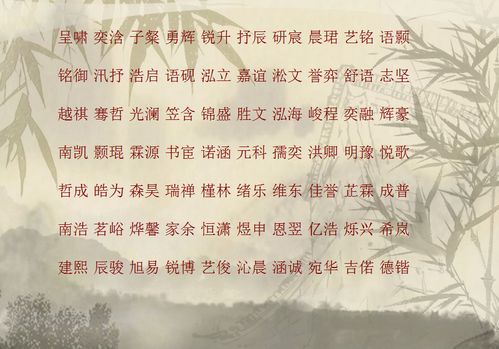 呈啸 奕浛 子粲 勇辉 锐升 抒辰 研宸 晨珺 艺铭 语颢
铭御 汛抒 浩启 语砚 泓立 嘉谊 淞文 誉弈 舒语 志坚
越祺 骞哲 光澜 笠含 锦盛 胜文 泓海 峻程 奕融 辉豪
南凯 颢琨 霖源 书宦 诺涵 元科 孺奕 洪卿 明豫 悦歌
哲成 皓为 森昊 瑞禅 槿林 绪乐 维东 佳誉 芷霖 成普
南浩 茗峪 烨馨 家余 恒潇 煜申 恩翌 亿浩 烁兴 希岚
建熙 辰骏 旭易 锐博 艺俊 沁晨 涵诚 宛华 吉偌 德锴